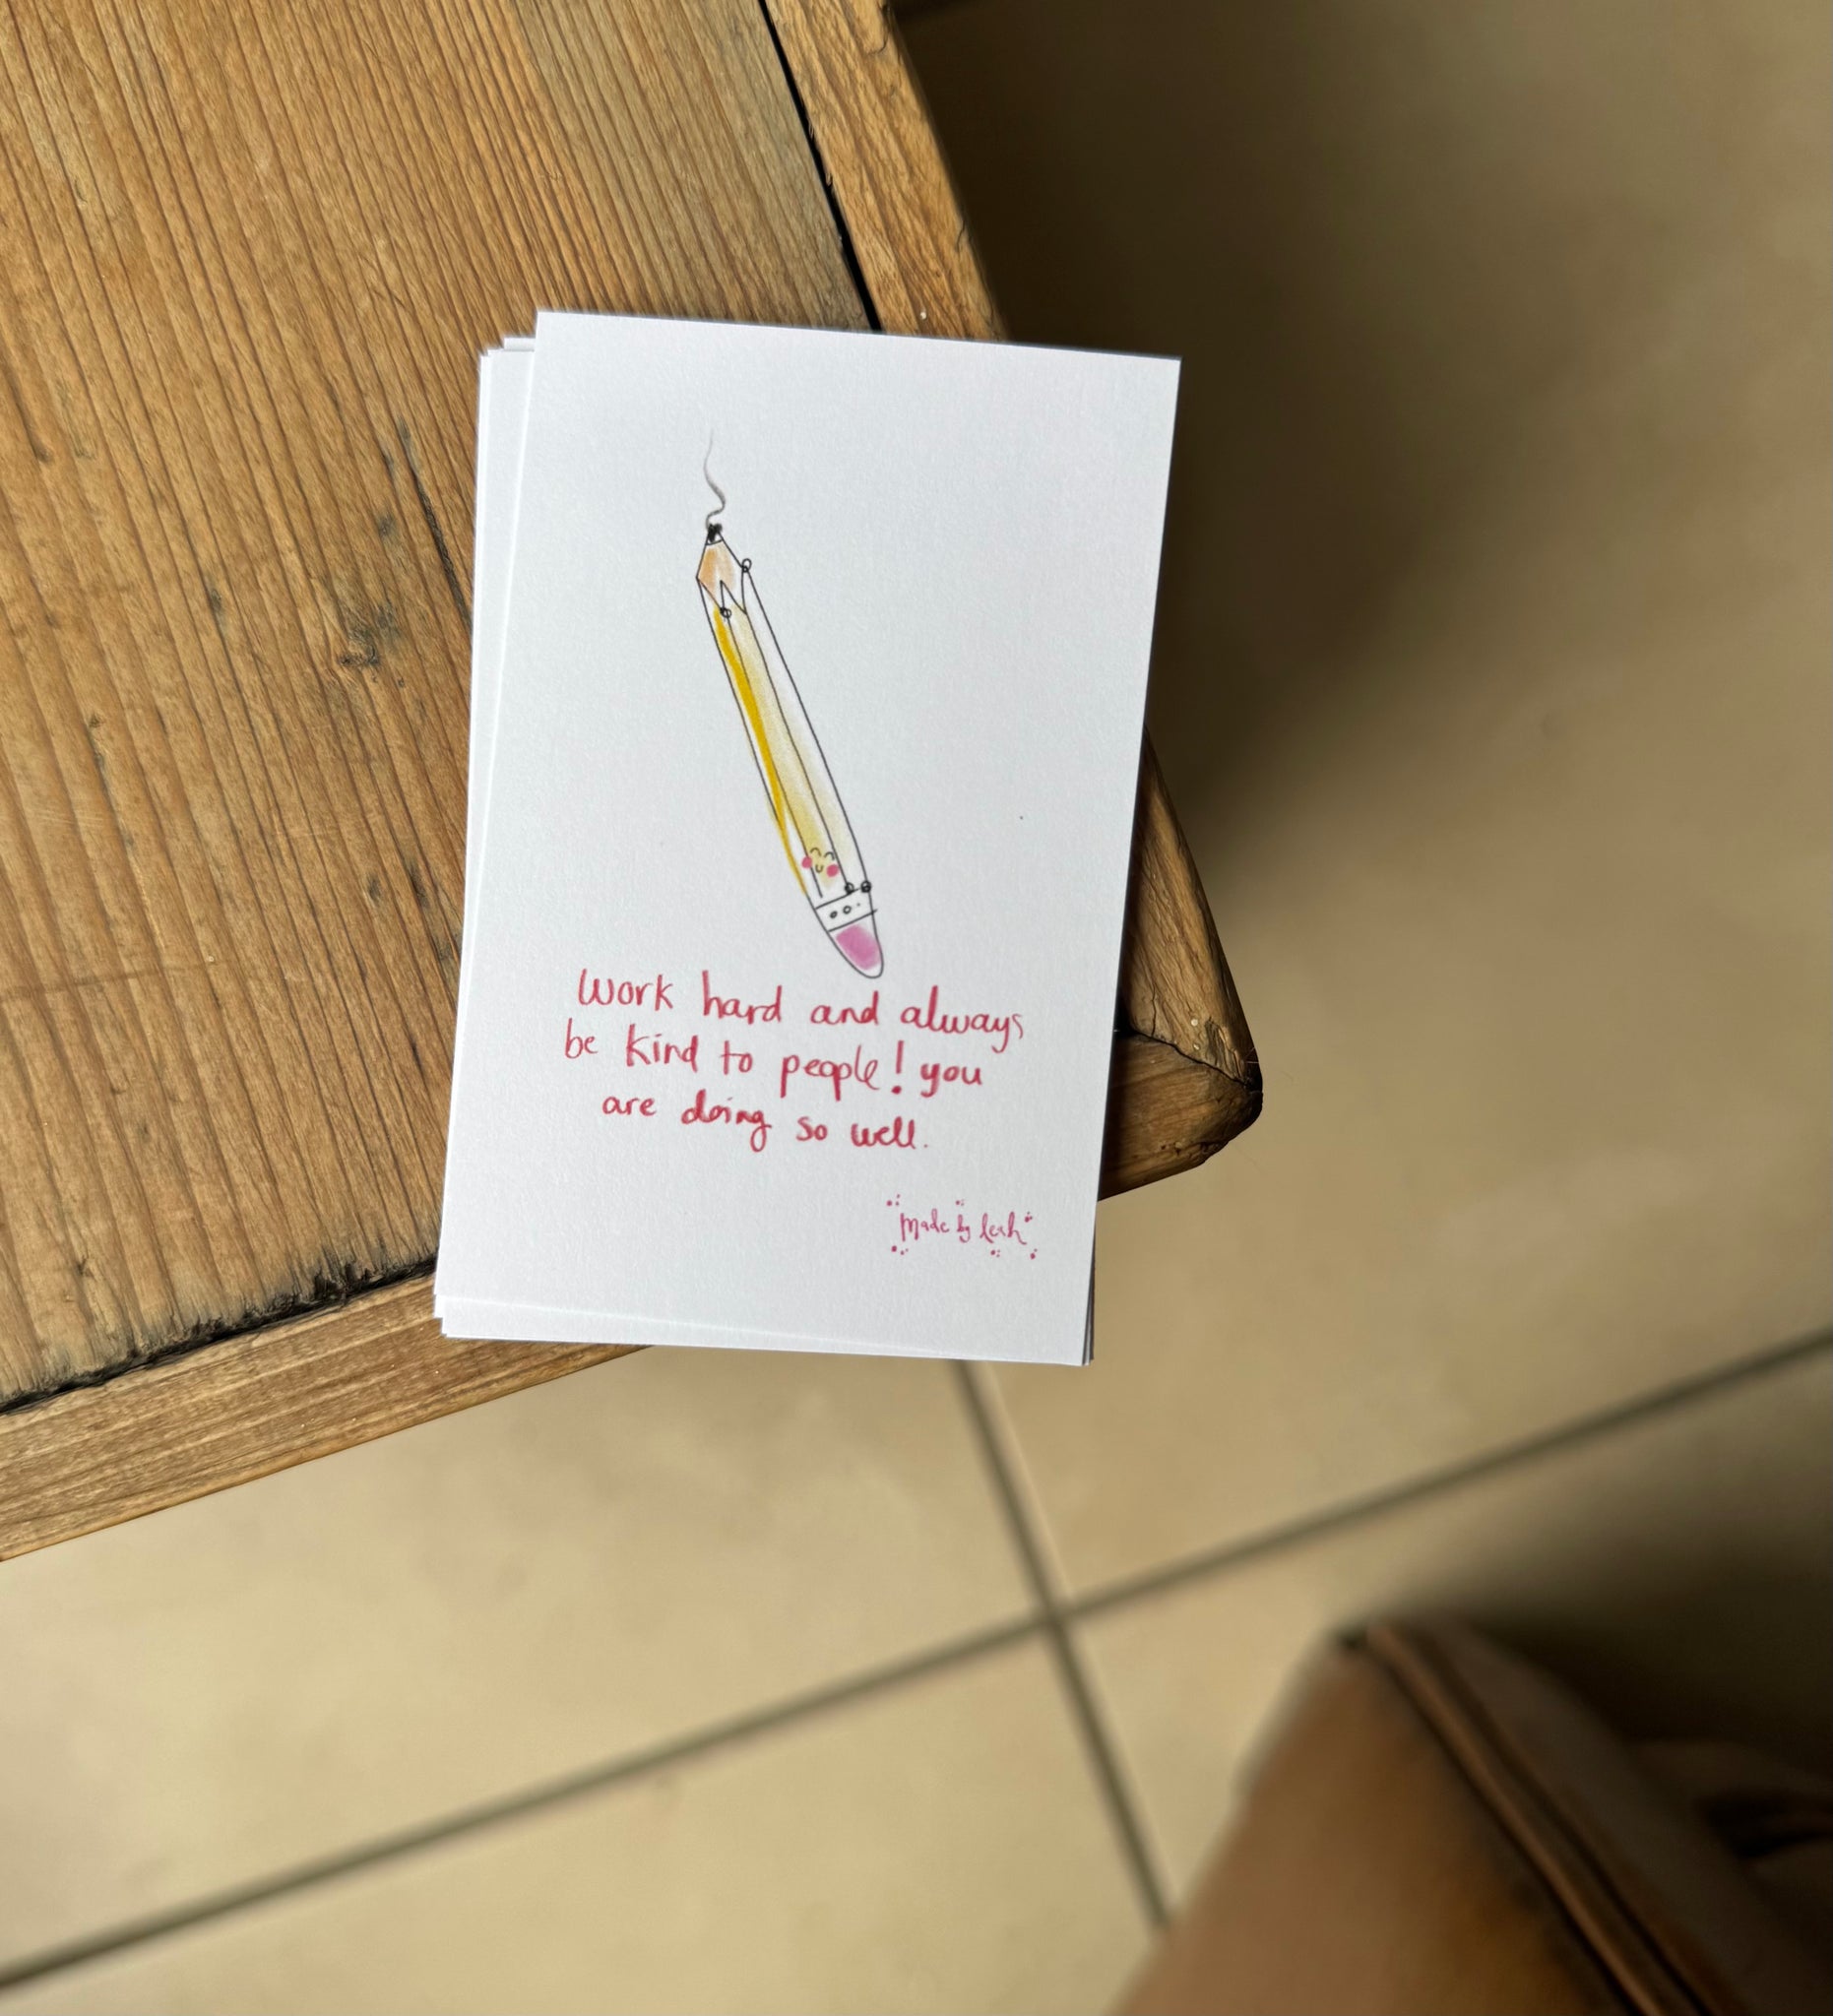 Work hard and always
be kind to people! you
are doing so well.
Made by leah